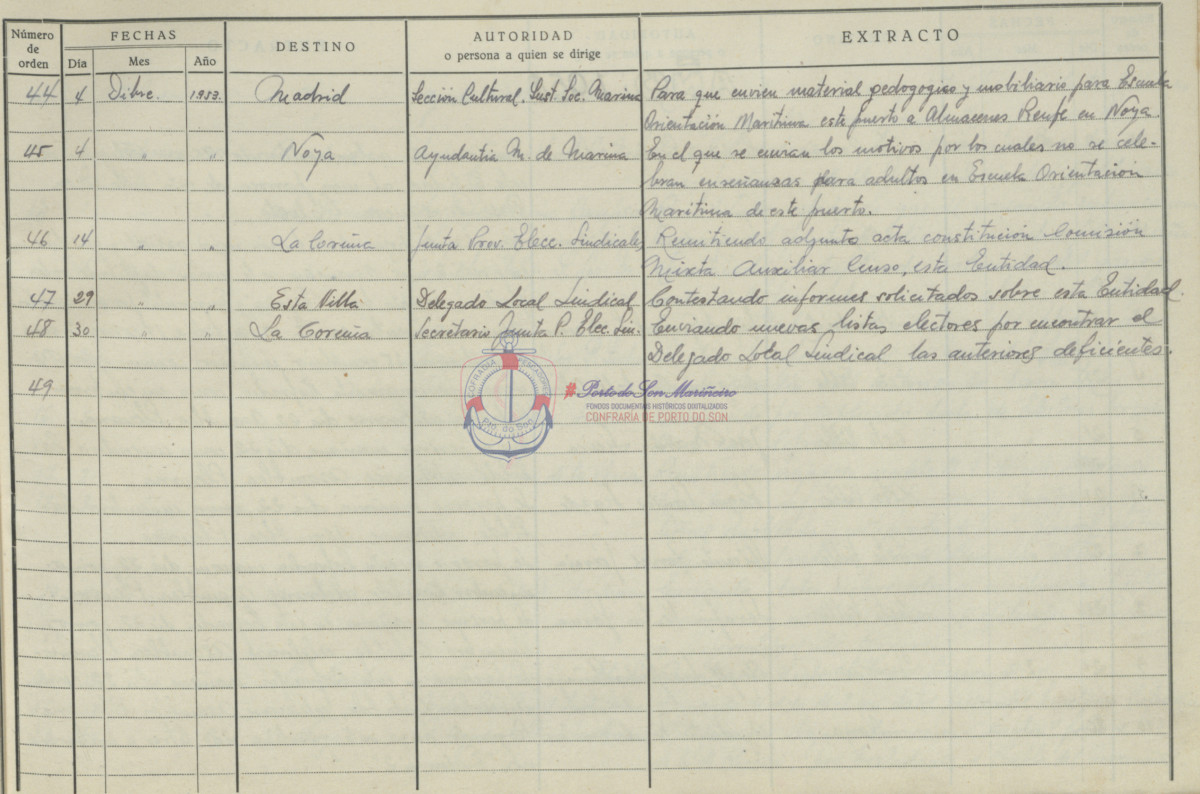 Número de orden FECHAS DESTINO AUTORIDAD o persona a quien se dirige EXTRACTO
Día Mes Año
44 4 Dibre. 1953. Madrid Sección Cultural. Inst. Soc. Marina Para que envien material pedogogico y mobiliario para Escuela
Orientación Maritima este puerto a Almacenes Renfe en Noya.
45 4 " " Noya Ayudantia M. de Marina En el que se envian los motivos por los cuales no se cele-
bran enseñanzas para adultos en Escuela Orientación
Maritima de este puerto.
46 14 " " La Coruña Junta Prov. Elecc. Sindicales Remitiendo adjunto acta constitución Comisión
Mixta Auxiliar Censo, esta Entidad.
47 29 " " Esta Villa Delegado Local Sindical Contestando informes solicitados sobre esta Entidad.
48 30 " " La Coruña Secretario Junta P. Elec. Sin. Enviando nuevas listas electores por encontrar el
Delegado Local Sindical las anteriores deficientes.
49
COFRADIA PESCADORES
Pto. do Son
# Porto do Son Mariñeiro
FONDOS DOCUMENTAIS HISTÓRICOS DIXITALIZADOS
CONFRARÍA DE PORTO DO SON